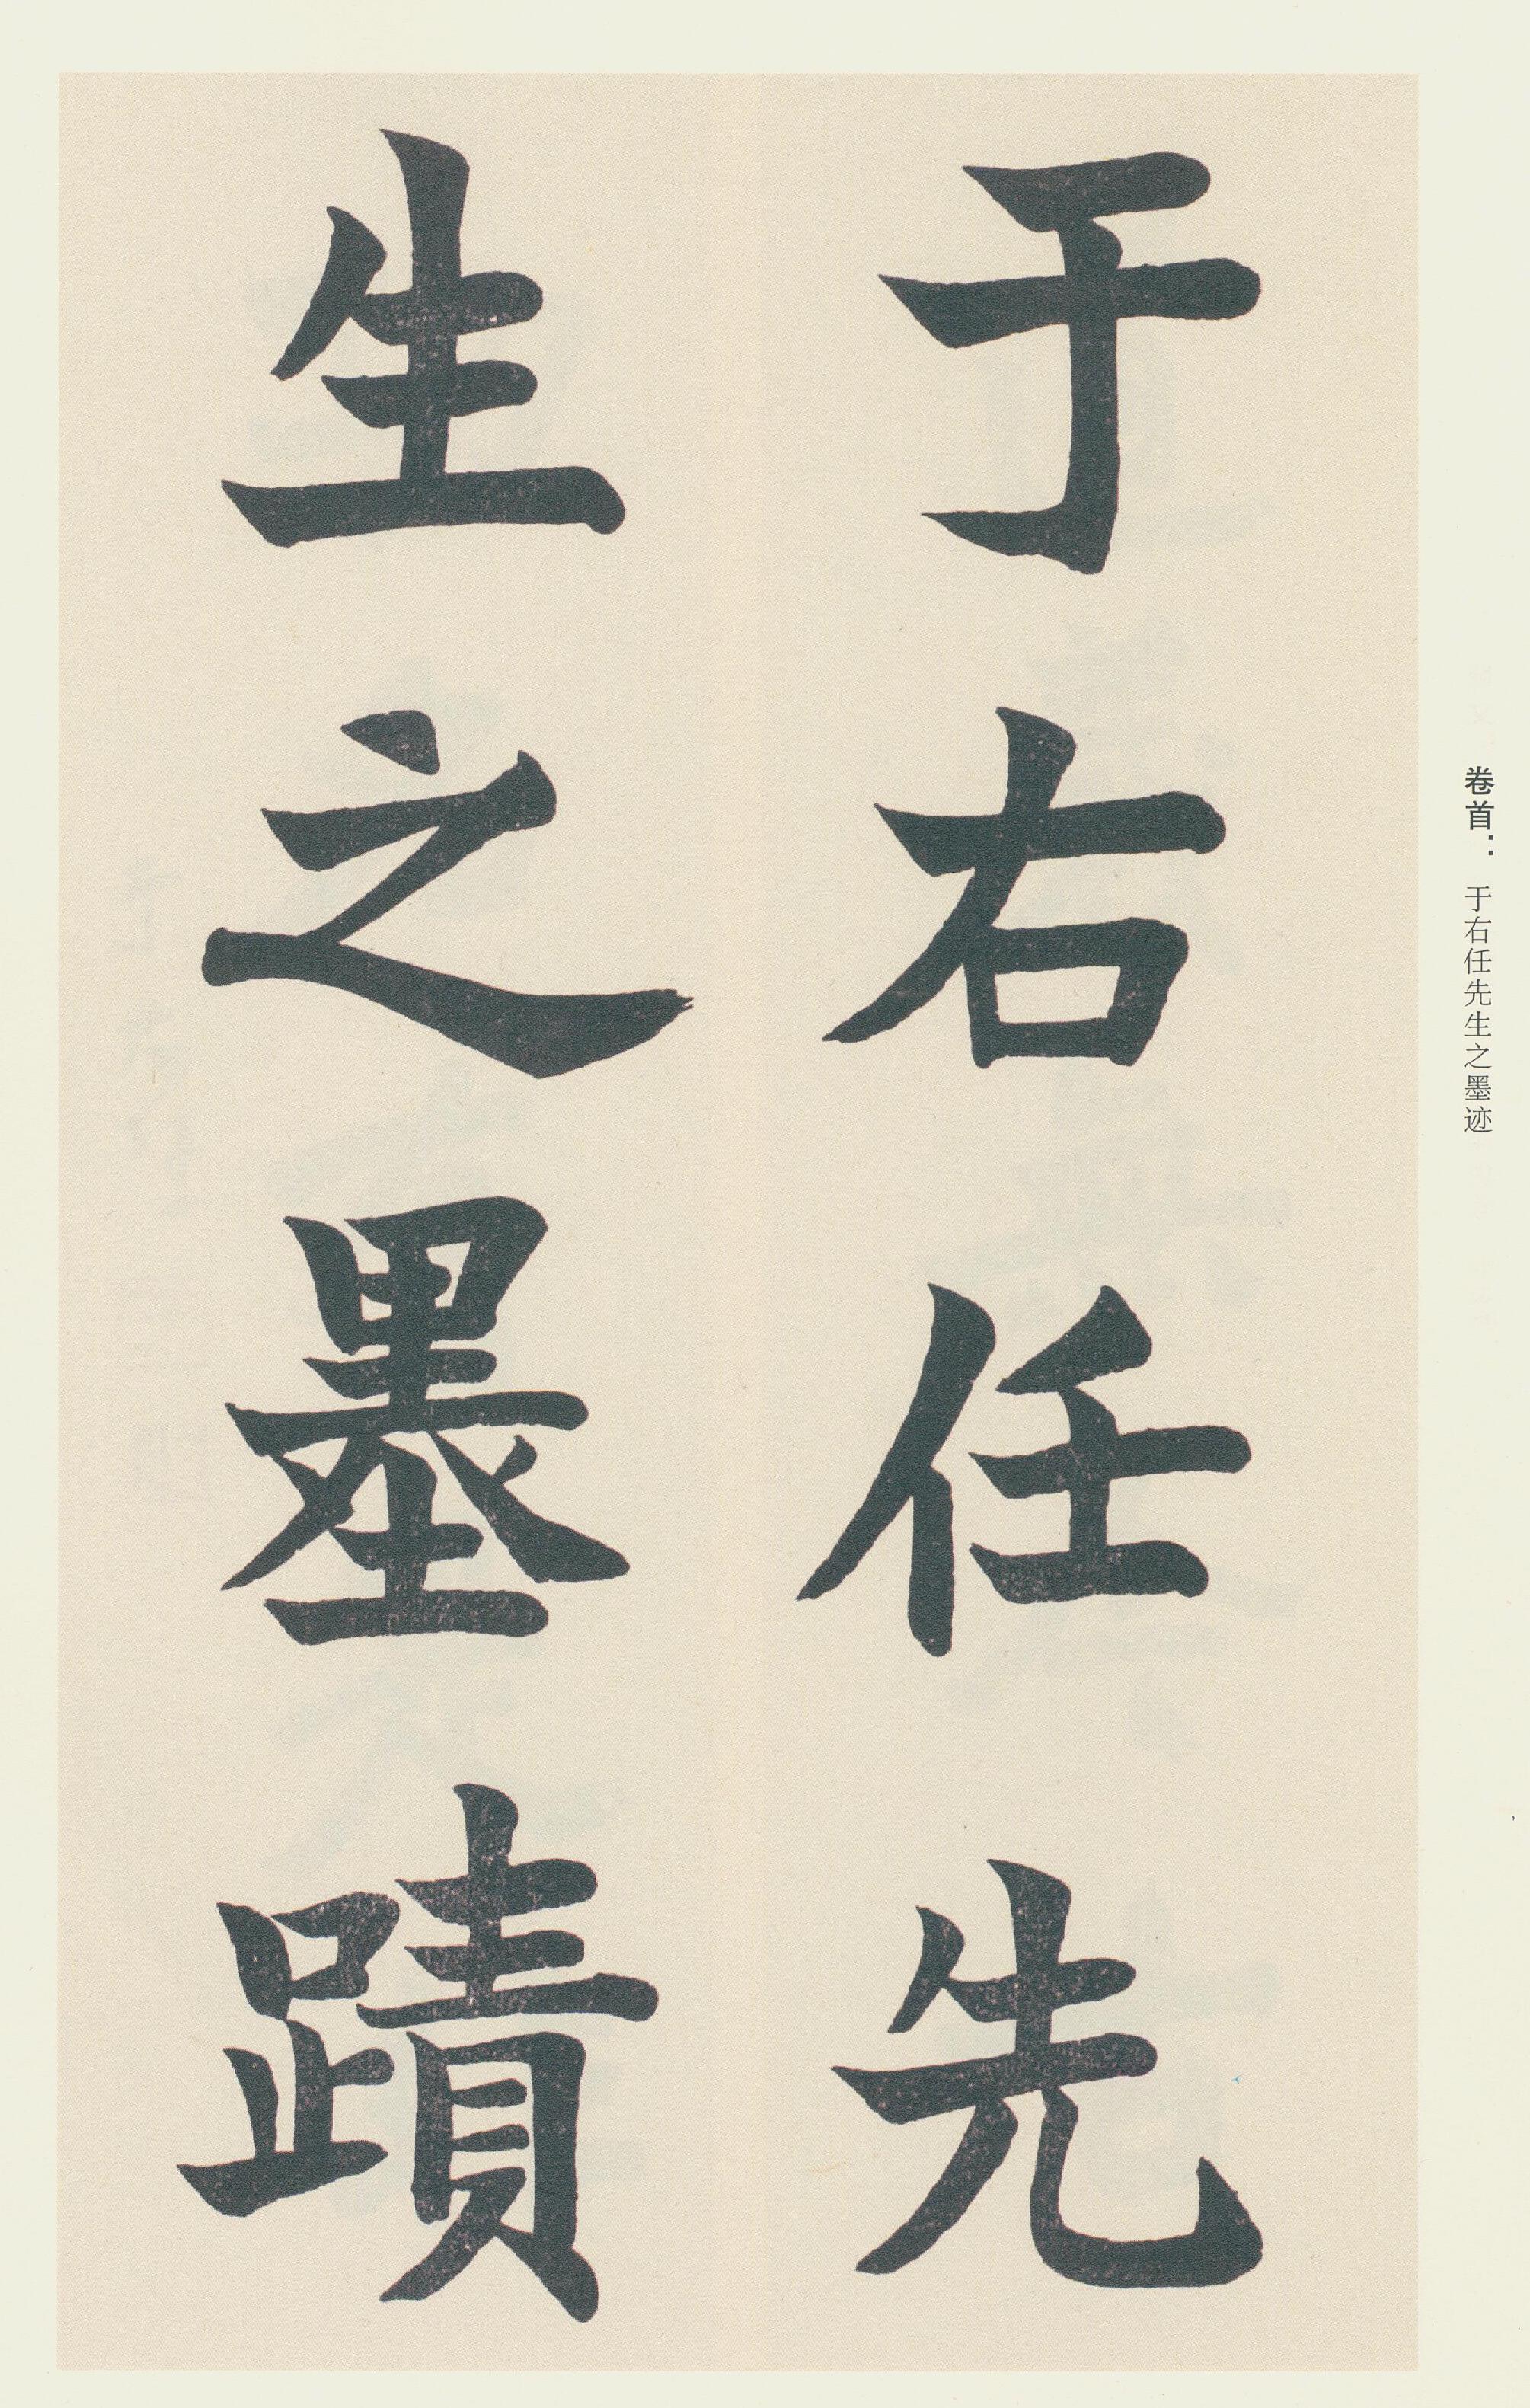 卷首：于右任先生之墨迹
于右任先
生之墨蹟